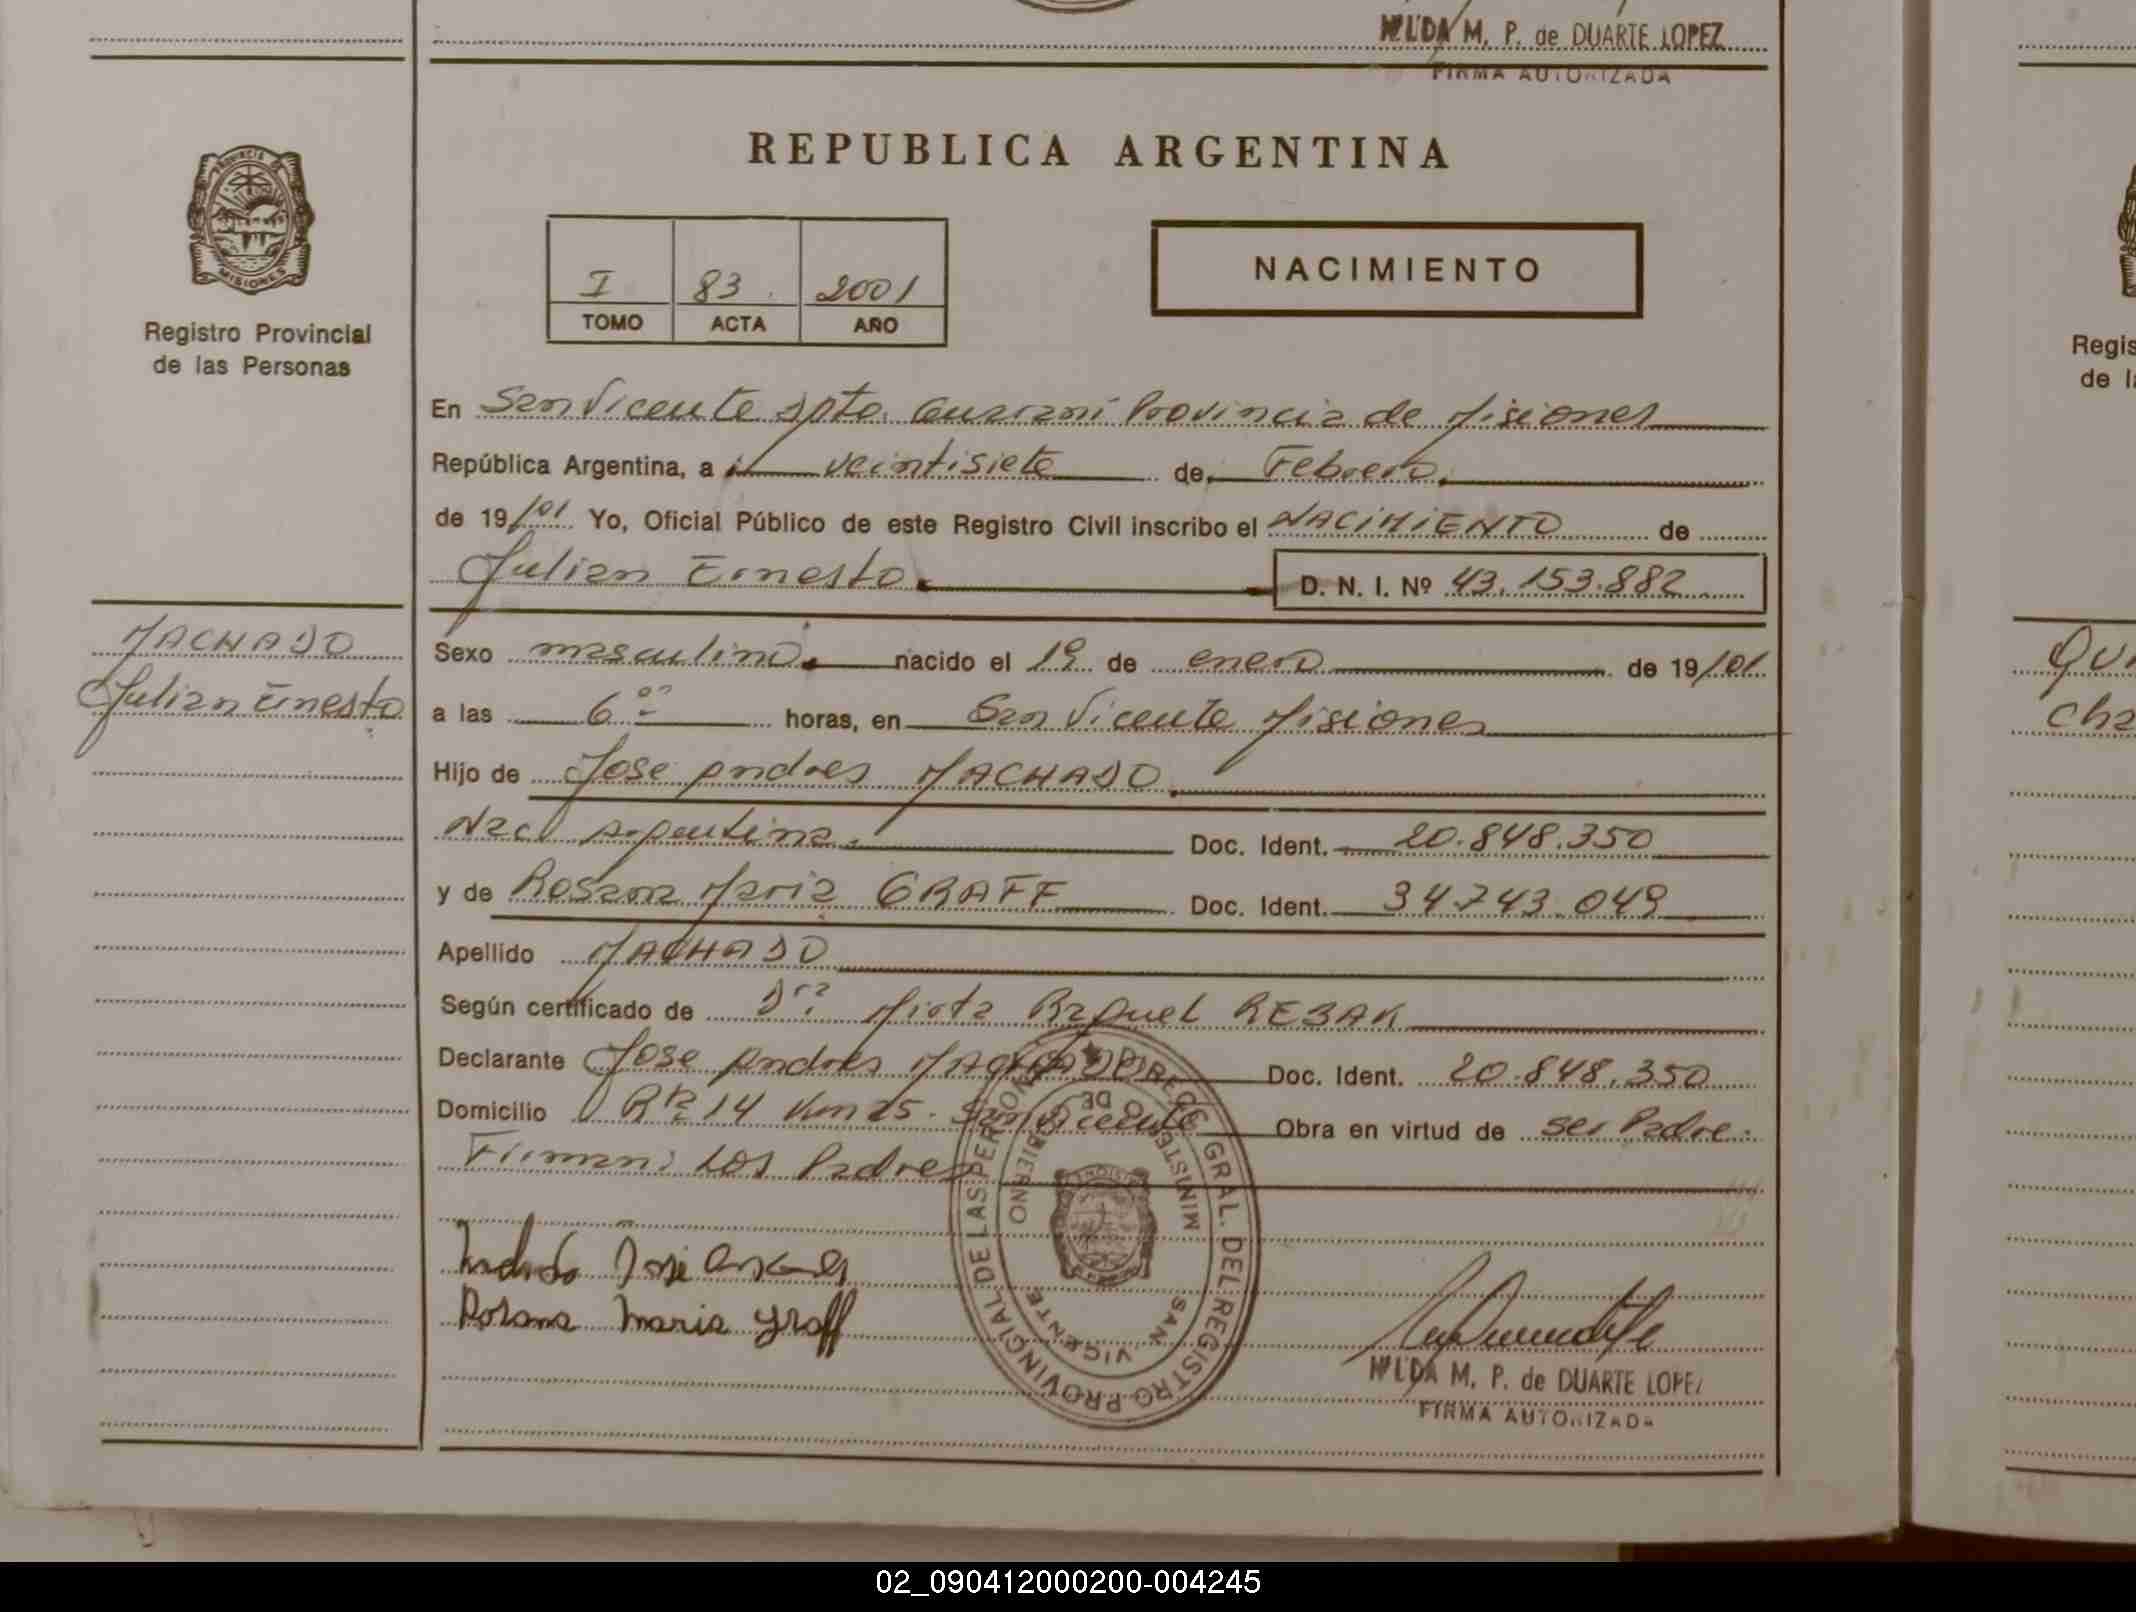 HILDA M. P. de DUARTE LOPEZ
FIRMA AUTORIZADA
PROVINCIA DE
MISIONES
Registro Provincial
de las Personas
REPUBLICA ARGENTINA
I 83 2001
TOMO ACTA AÑO
NACIMIENTO
En San Vicente Dpto. Guaraní Provincia de Misiones
República Argentina, a veintisiete de Febrero
de 19/01 Yo, Oficial Público de este Registro Civil inscribo el NACIMIENTO de
Julian Ernesto D. N. I. Nº 43.153.882
MACHADO
Julian Ernesto
Sexo masculino nacido el 19 de enero de 19/01
a las 6 00 horas, en San Vicente Misiones
Hijo de Jose Andres MACHADO
Nac. Argentina. Doc. Ident. 20.848.350
y de Rosana Maria GRAFF Doc. Ident. 34.743.049
Apellido MACHADO
Según certificado de Dra. Mirta Raquel REBAK
Declarante Jose Andres MACHADO Doc. Ident. 20.848.350
Domicilio Rta 14 Km 25. San Vicente Obra en virtud de ser Padre.
Firman: Los Padres
Machado José Andres
Rosana Maria Graff
DIRECC. GRAL. DEL REGISTRO PROVINCIAL DE LAS PERSONAS
MINISTERIO DE GOBIERNO
SAN VICENTE
HILDA M. P. de DUARTE LOPEZ
FIRMA AUTORIZADA
Regis
de la
Cha
02_090412000200-004245